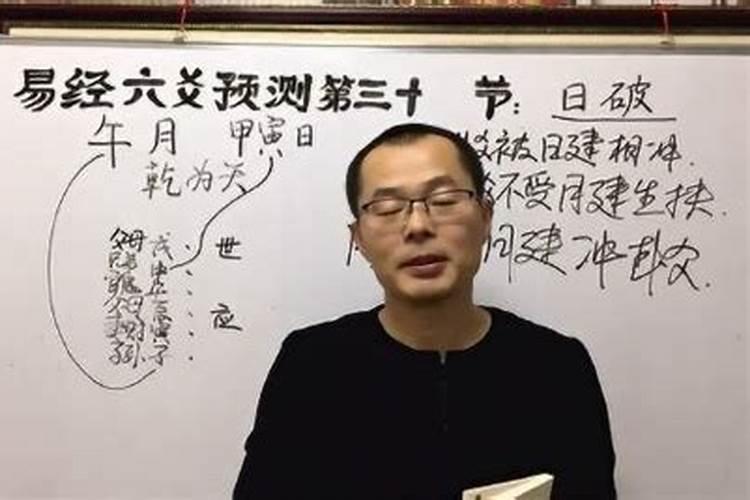 易经六爻预测第三十 节: 日破
午月 甲寅日
乾为天
被日建相冲.
不受月建生扶.
建冲卦爻.
父母 戌 世
兄弟 申
官鬼
父母 辰 应
寅
孙 子